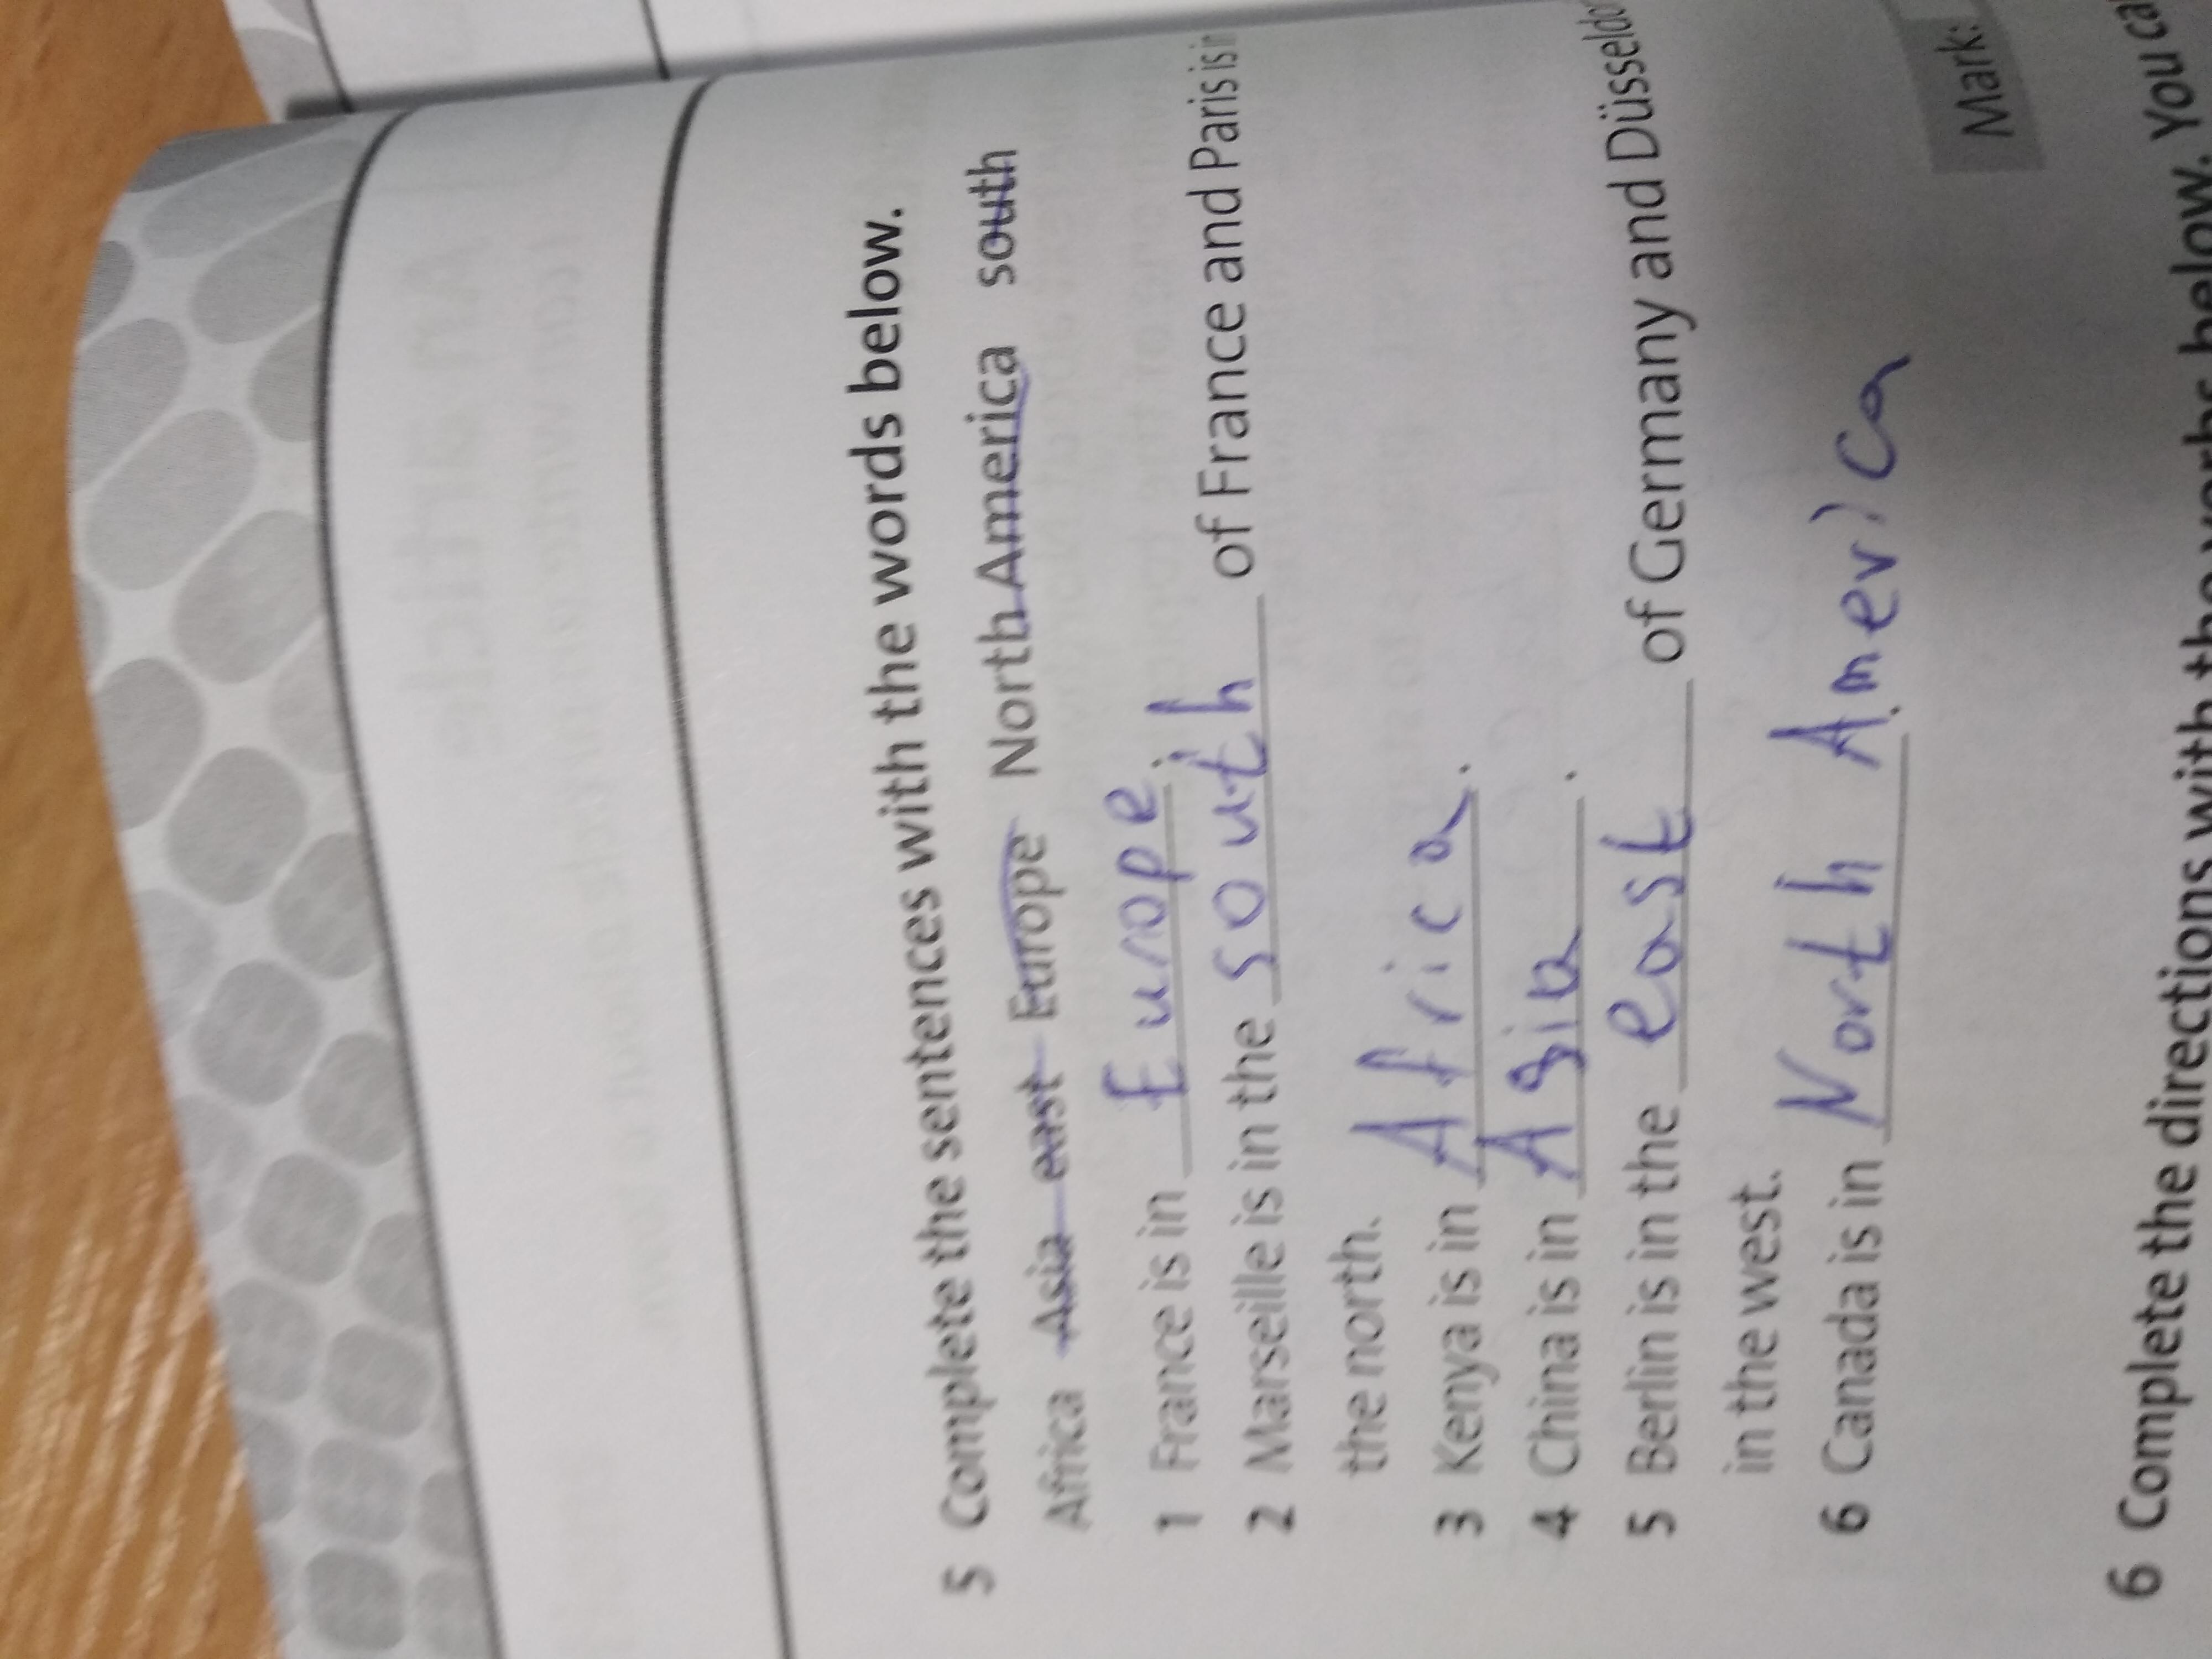 5 Complete the sentences with the words below.
Africa Asia east Europe North America south
1 France is in Europe.
2 Marseille is in the south of France and Paris is in
the north.
3 Kenya is in Africa.
4 China is in Asia.
5 Berlin is in the east of Germany and Düsseldo
in the west.
6 Canada is in North America
Mark:
6 Complete the directions with the verbs below. You ca